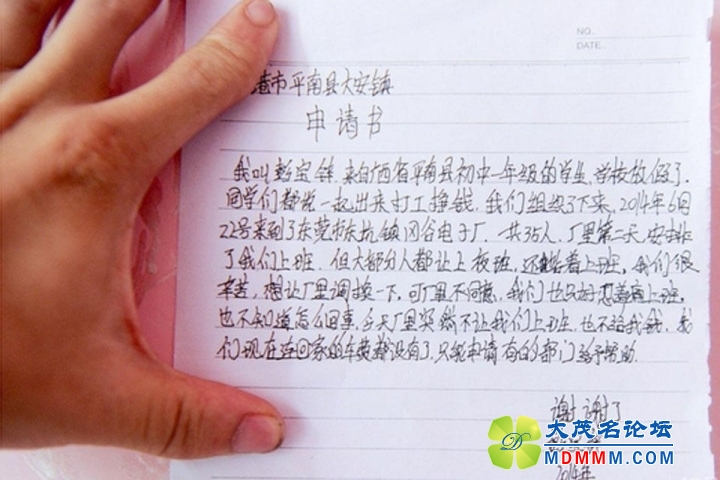 NO.
DATE.
港市平南县大安镇
申请书
我叫彭宝 来自广西省平南县初中一年级的学生,学校放假了.
同学们都说一起出来打工挣钱.我们组织了下来,2014年6月
22号来到了东莞市东坑镇冈谷电子厂 一共35人.厂里第二天,安排
了我们上班.但大部分人都让上夜班,还 着上班,我们很
辛苦,想让厂里调换一下,可厂里不同意,我们也只好忍着痛上班,
也不知道怎么回事,今天厂里突然不让我们上班.也不给我钱.我
们现在连回家的车费都没有了.只能申请有的部门给予帮助.
谢谢了
2014年
大茂名论坛
MDMMM.COM